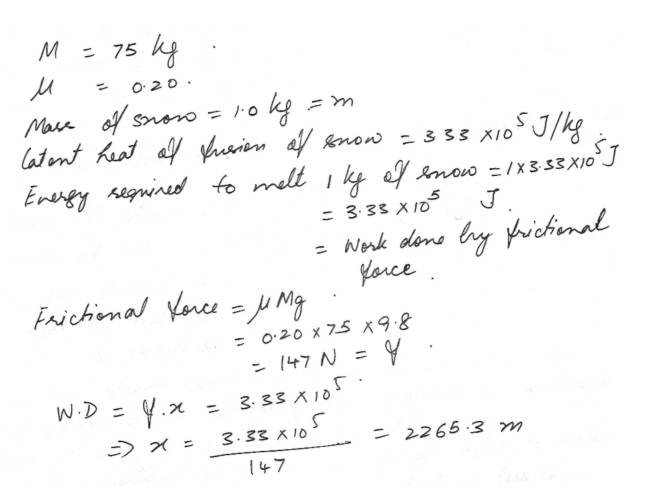 M = 75 kg.
μ = 0.20.
Mass of snow = 1.0 kg = m
Latent heat of fusion of snow = 3 33 X10⁵ J/kg.
Energy required to melt 1 kg of snow = 1X3.33X10⁵J
= 3.33 X 10⁵ J.
= Work done by frictional
force.
Frictional force = μMg.
= 0.20 X 75 X9.8
= 147 N = f.
W.D = f.x = 3.33 X 10⁵.
=> x = 3.33 X 10⁵ / 147 = 2265.3 m